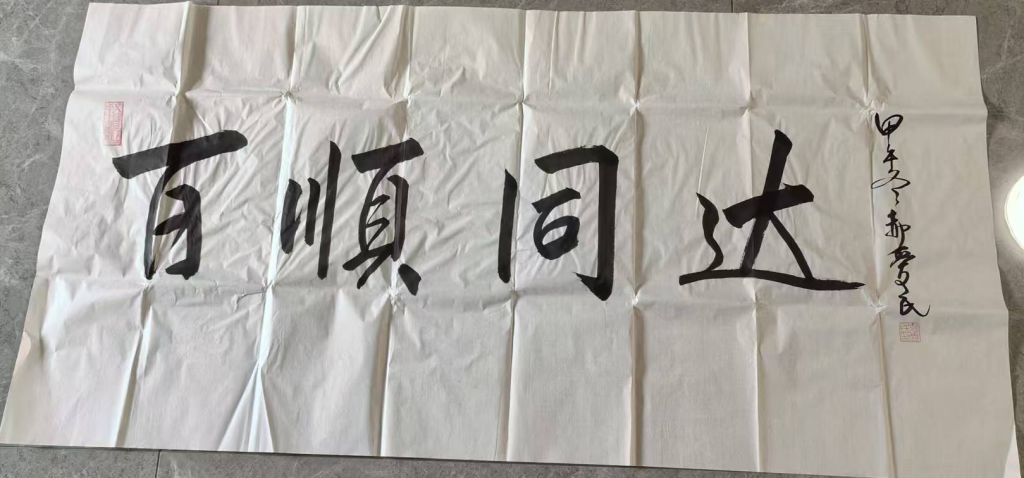 百順同达
甲午冬郝愛民